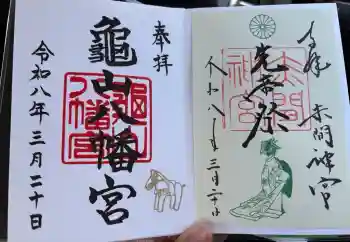 奉拝
龜山八幡宮
令和八年三月二十日
奉拝 赤間神宮
先帝祭
令和八年三月二十日